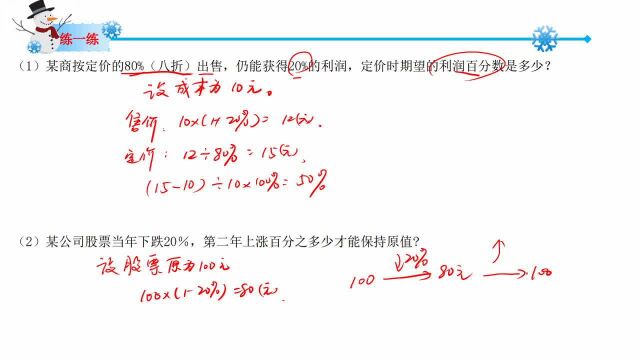 练一练
（1）某商按定价的80%（八折）出售，仍能获得20%的利润，定价时期望的利润百分数是多少？
设成本为10元。
售价：10×(1+20%)=12(元)
定价：12÷80%=15(元)
(15-10)÷10×100%=50%
（2）某公司股票当年下跌20%，第二年上涨百分之多少才能保持原值？
设股票原为100元
100×(1-20%)=80(元)
100 ↓20% → 80元 ↑ → 100